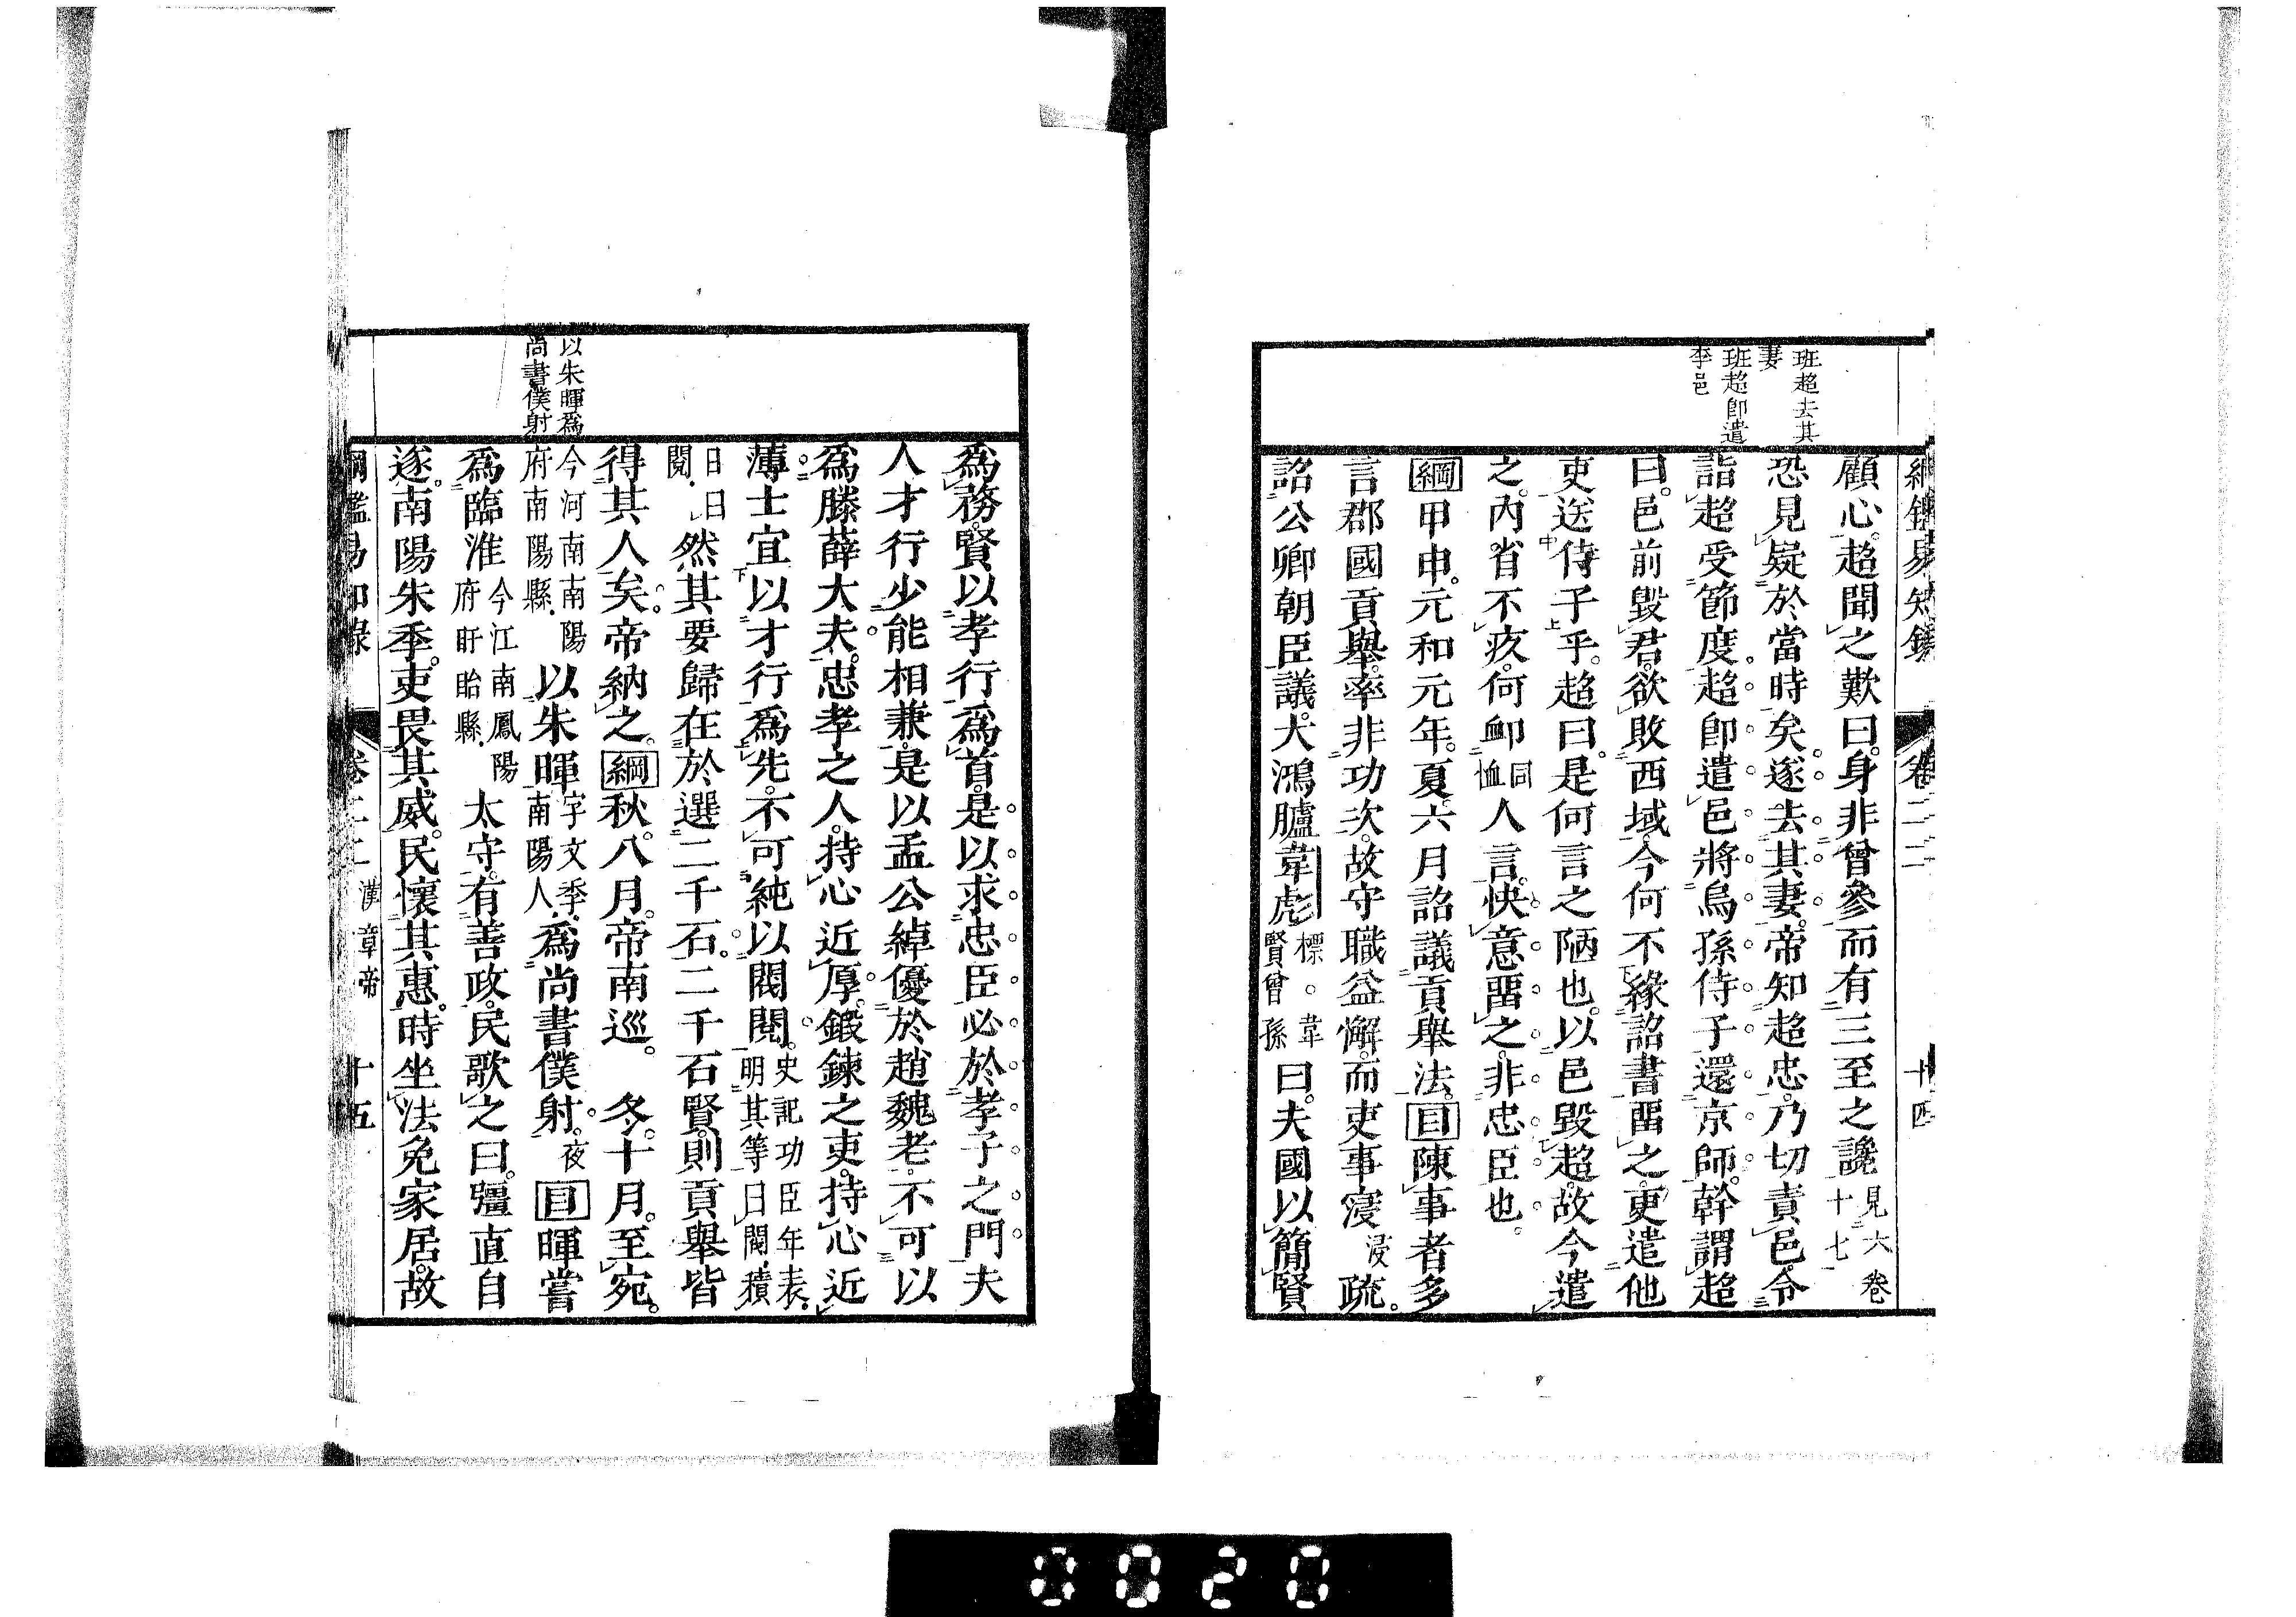 綱鑑易知錄 卷二二 十四
班超去其
妻
班超卽遣
李邑
顧心。超聞之歎曰。身非曾參而有三至之讒見六卷十七
恐見疑於當時矣。遂去其妻。帝知超忠。乃切責邑。令
詣超受節度。超卽遣邑將烏孫侍子還京師。幹謂超
曰。邑前毀君。欲敗西域。今何不緣詔書畱之。更遣他
吏送侍子乎。超曰。是何言之陋也。以邑毀超。故今遣
之。內省不疚。何卹同恤人言。快意畱之。非忠臣也。
綱甲申。元和元年。夏。六月。詔議貢舉法。目陳事者多
言郡國貢舉。率非功次。故守職益懈。而吏事寖浸疏。
詔公卿朝臣議。大鴻臚韋彪標。韋賢曾孫曰。夫國以簡賢
爲務。賢以孝行爲首。是以求忠臣必於孝子之門。夫
人才行少能相兼。是以孟公綽優於趙魏老。不可以
爲滕薛大夫。忠孝之人。持心近厚。鍛鍊之吏。持心近
薄。士宜以才行爲先。不可純以閥閱。史記功臣年表。明其等曰閥。積
日曰閱。然其要歸在於選二千石。二千石賢。則貢舉皆
得其人矣。帝納之。綱秋。八月。帝南巡。 冬。十月。至宛。
以朱暉爲
尚書僕射
今河南南陽府南陽縣。以朱暉字文季。南陽人。爲尚書僕射。夜目暉嘗
爲臨淮今江南鳳陽府盱眙縣。太守。有善政。民歌之曰。彊直自
遂。南陽朱季。吏畏其威。民懷其惠。時坐法免家居。故
綱鑑易知錄 卷二二 漢章帝 十五
0020